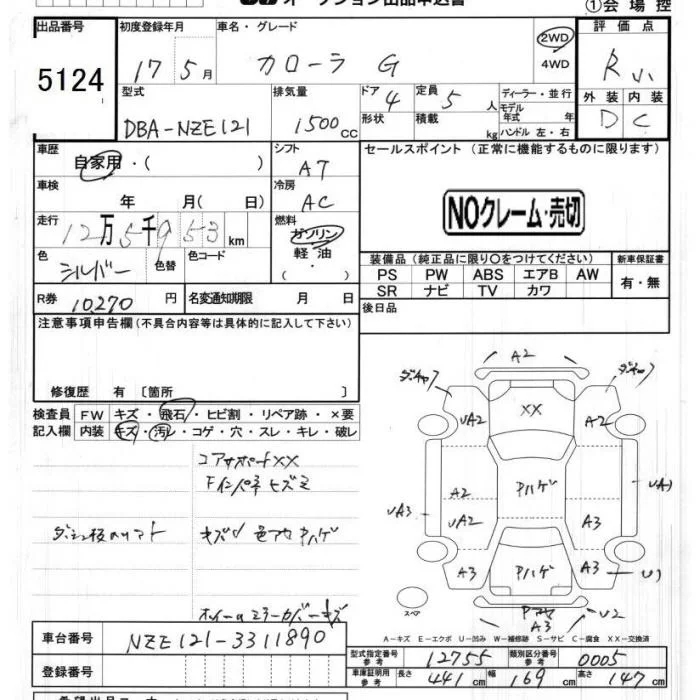 オークション出品申込書
①会場控
出品番号
5124
初度登録年月
車名・グレード
評価点
17年5月
カローラ G
2WD
4WD
R小
型式
排気量
ドア
定員
ディーラー・並行
外装 内装
DBA-NZE121
1500cc
4
5人
モデル年式 年
D C
形状
積載 kg
ハンドル 左・右
車歴
自家用・( )
シフト
AT
セールスポイント (正常に機能するものに限ります)
車検
年 月( 日)
冷房
AC
NOクレーム・売切
走行
12万5千953km
燃料
ガソリン
軽油
( ・ )
色
シルバー
色替
色コード
装備品(純正品に限り〇をつけてください)
新車保証書
PS PW ABS エアB AW
有・無
SR ナビ TV カワ
R券 10,270円
名変通知期限 月 日
後日品
注意事項申告欄(不具合内容等は具体的に記入して下さい)
修復歴 有〔箇所 〕
検査員
記入欄
FW キズ・飛石・ヒビ割・リペア跡・×要
内装 キズ・汚レ・コゲ・穴・スレ・キレ・破レ
コアサポートXX
Fインパネ ヒズミ
キズ 色アセ Pハゲ
ホイール ミラーカバーキズ
A2
XX
UA2
A2
A2
UA2
UA3
Pハゲ
A3
A3
A3
Pハゲ
U2
A3
スペア
A-キズ E-エクボ U-凹み W-補修跡 S-サビ C-腐食 XX-交換済
車台番号
NZE121-3311890
登録番号
型式指定番号
参考
12755
類別区分番号
参考
0005
車庫証明用
参考
長さ 441cm
幅 169cm
高さ 147cm